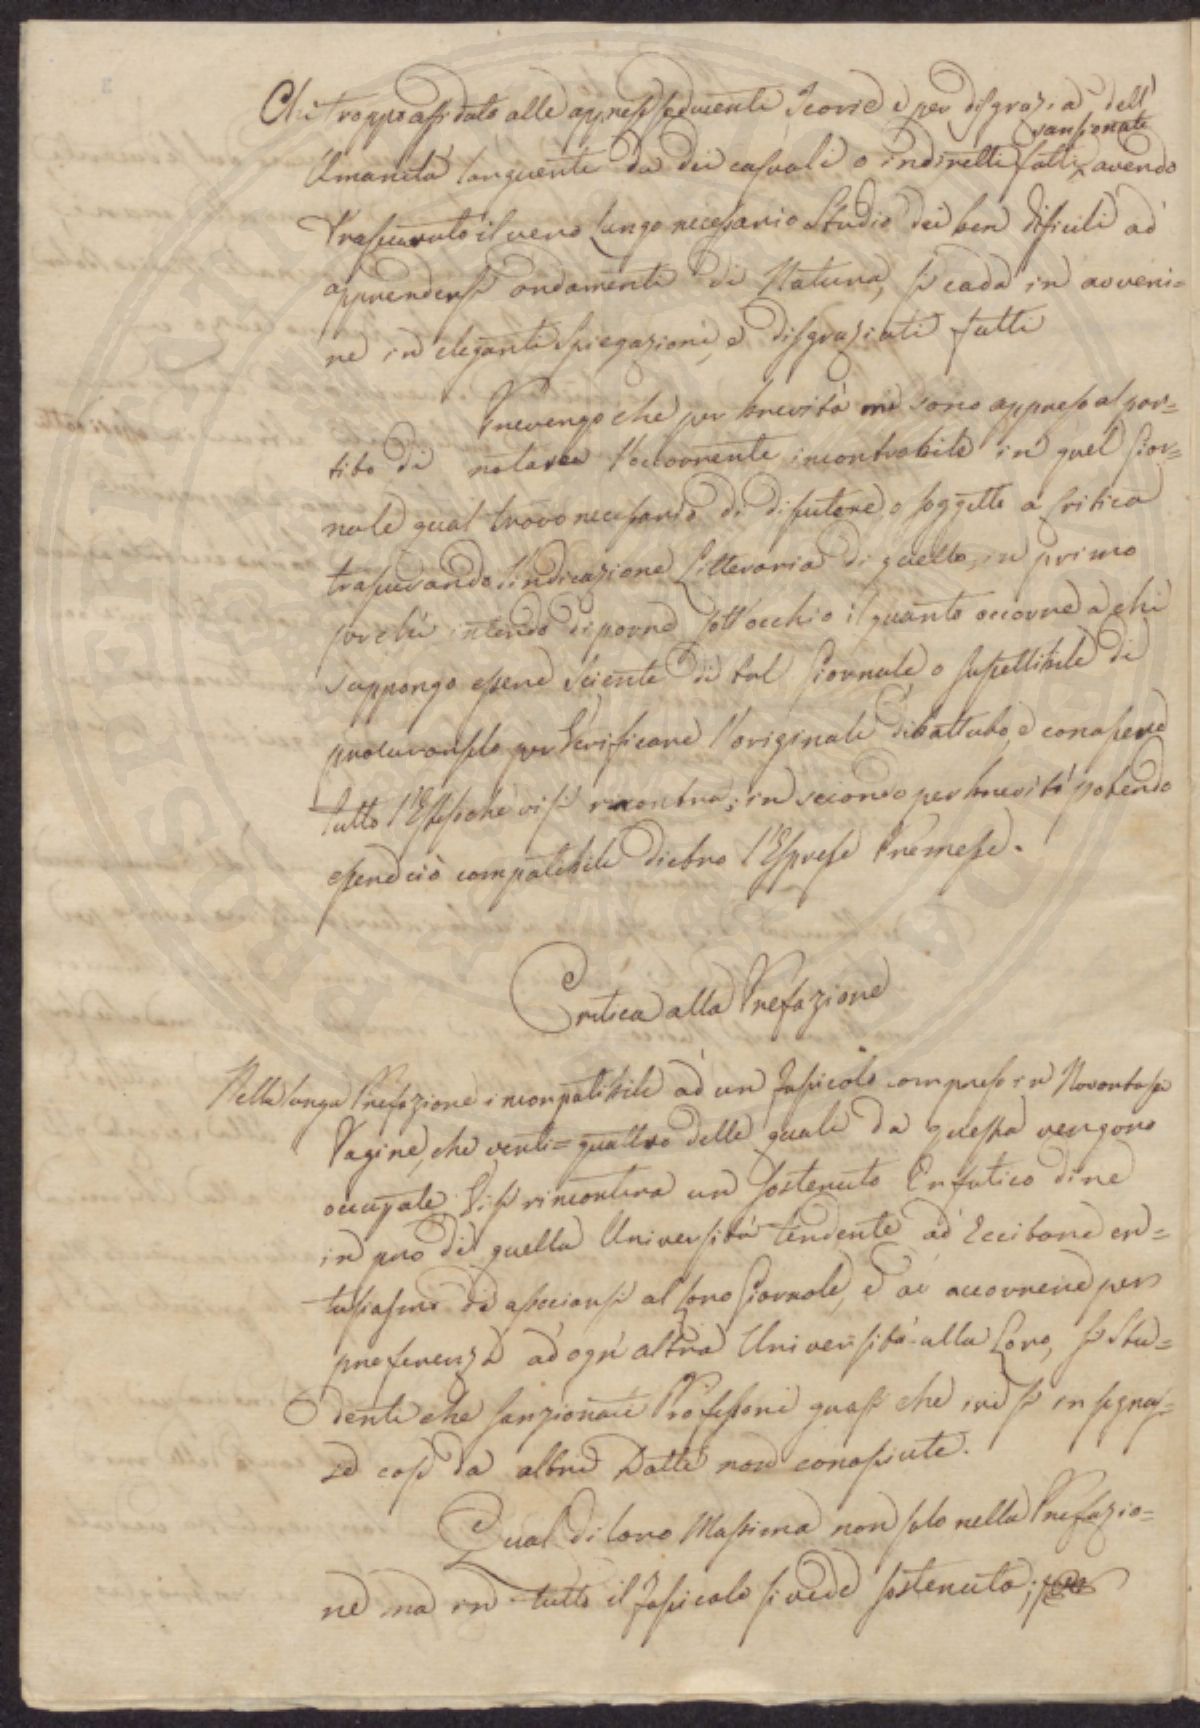 Chi troppo affidato alle appresse Teorie e per disgrazia dell'
Umanità languente da dei casuali o indiretti fatti sansionate avendo
Trascurato il vero lungo necessario Studio dei ben dificili ad
apprendersi andamenti di Natura, si cada in avveni=
re in eleganti spiegazioni, e disgraziati fatti
Prevengo che per brevità mi sono appreso al par=
tito di notare l'occorrente incontrabile in quel Gior=
nale qual trovo necessario di discutere, o soggetto a critica
trascurando l'indicazione Litteraria di quello, in primo
perchè intendo di porre sott'occhio il quanto occorre a chi
suppongo essere sciente di tal Giornale o suscettibile di
procurarselo per Verificare l'originale dibattuto, e conoscere
tutto l'Esteso che vi si riscontra; in secondo per brevità potendo
essere ciò compatibile dietro l'Espresse Premesse.
Critica alla Prefazione
Nella lunga Prefazione incompatibile ad un Fascicolo compreso in Novantasei
Pagine, che venti=quattro delle quali da questa vengono
occupate Vi si rincontra un sostenuto Enfatico dire
in pro di quella Università tendente ad Eccitare en=
tusiasmo di associarsi al loro Giornale, e di accorrere per
preferenza ad ogn'altra Università alla Loro, si Stu=
denti che sanzionati Professori quasi che ivi si insegnas=
se cose da altri Dotti non conosciute.
Qual di loro Massima non solo nella Prefazio=
ne ma in tutto il Fascicolo si vede sostenuta;